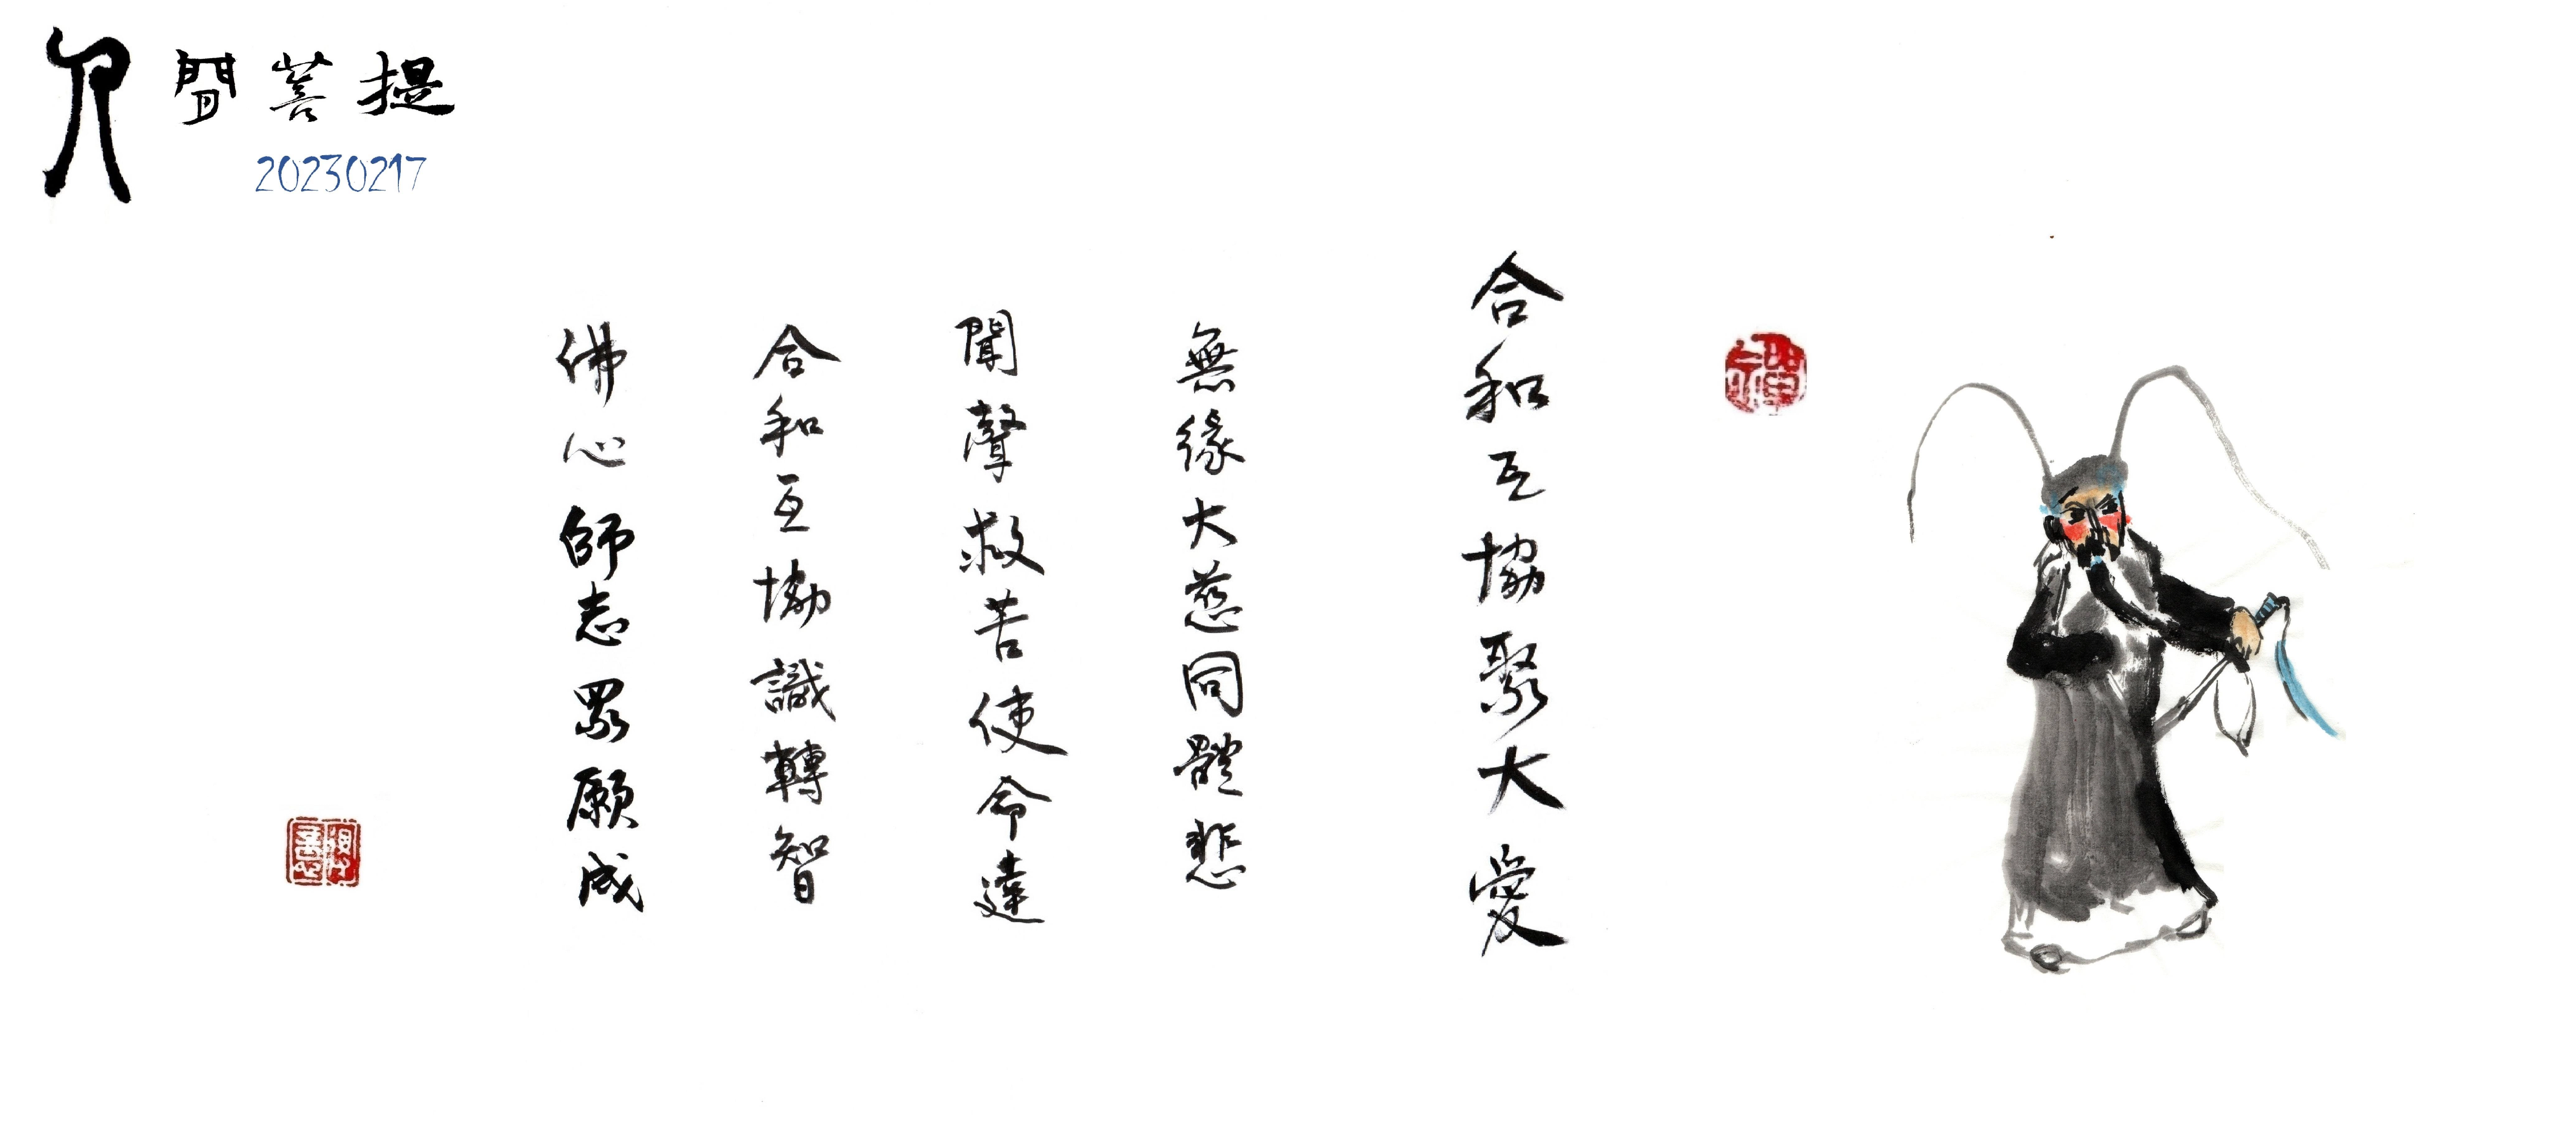 人間菩提
20230217
合和互協聚大愛
無緣大慈同體悲
聞聲救苦使命達
合和互協識轉智
佛心師志眾願成